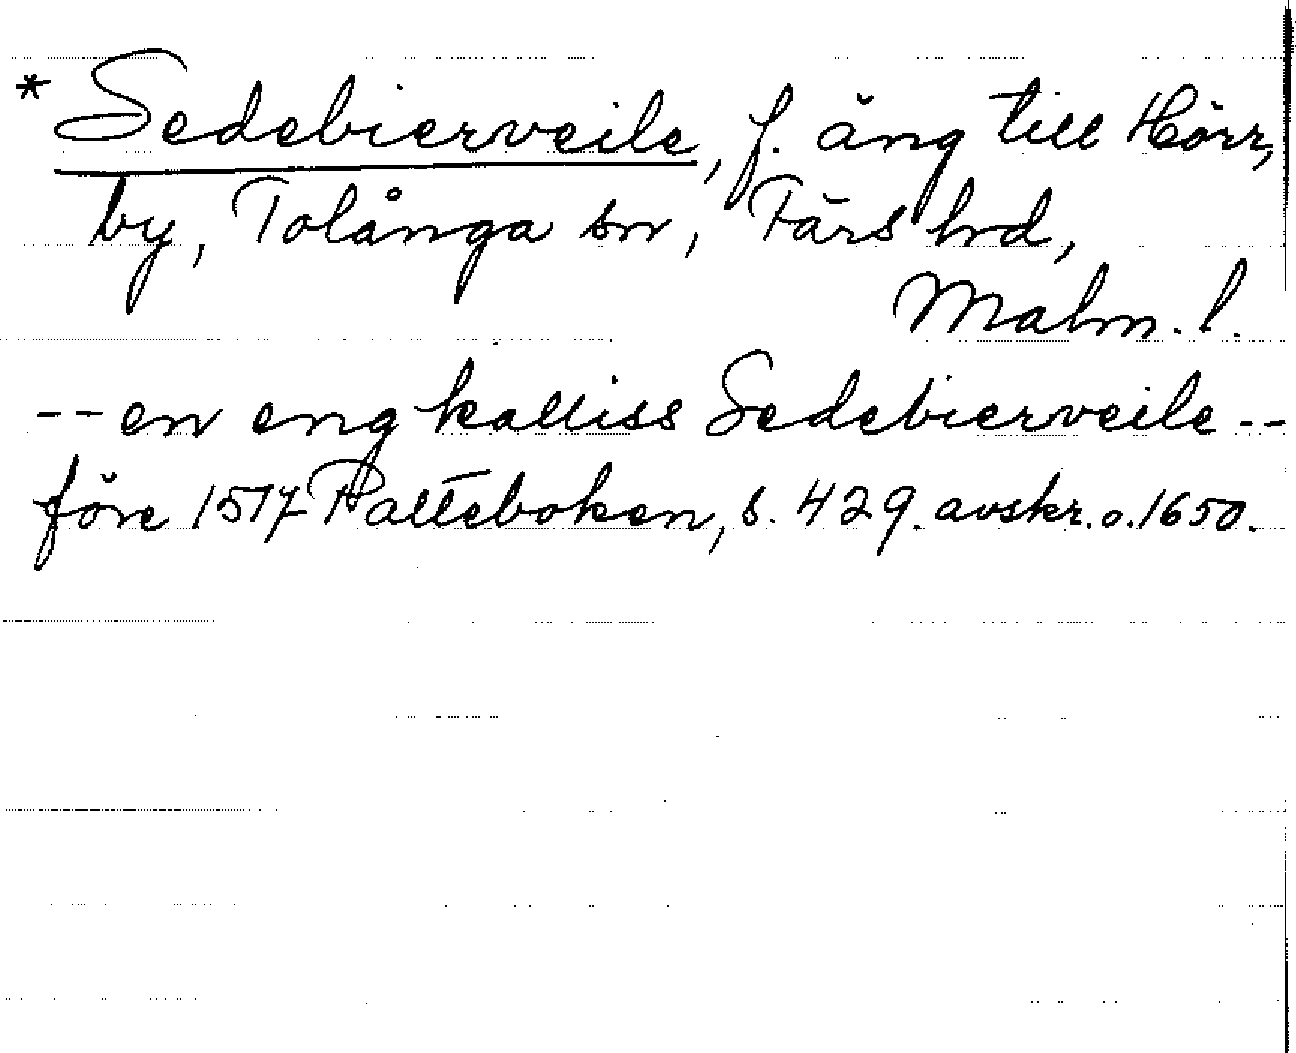 * Sedebierveile, f. äng till Hörr,
by, Tolånga sn, Färs hrd,
Malm. l.
-- en eng kalliss Sedebierveile --
före 1517 Palteboken, s. 429. avskr. o. 1650.